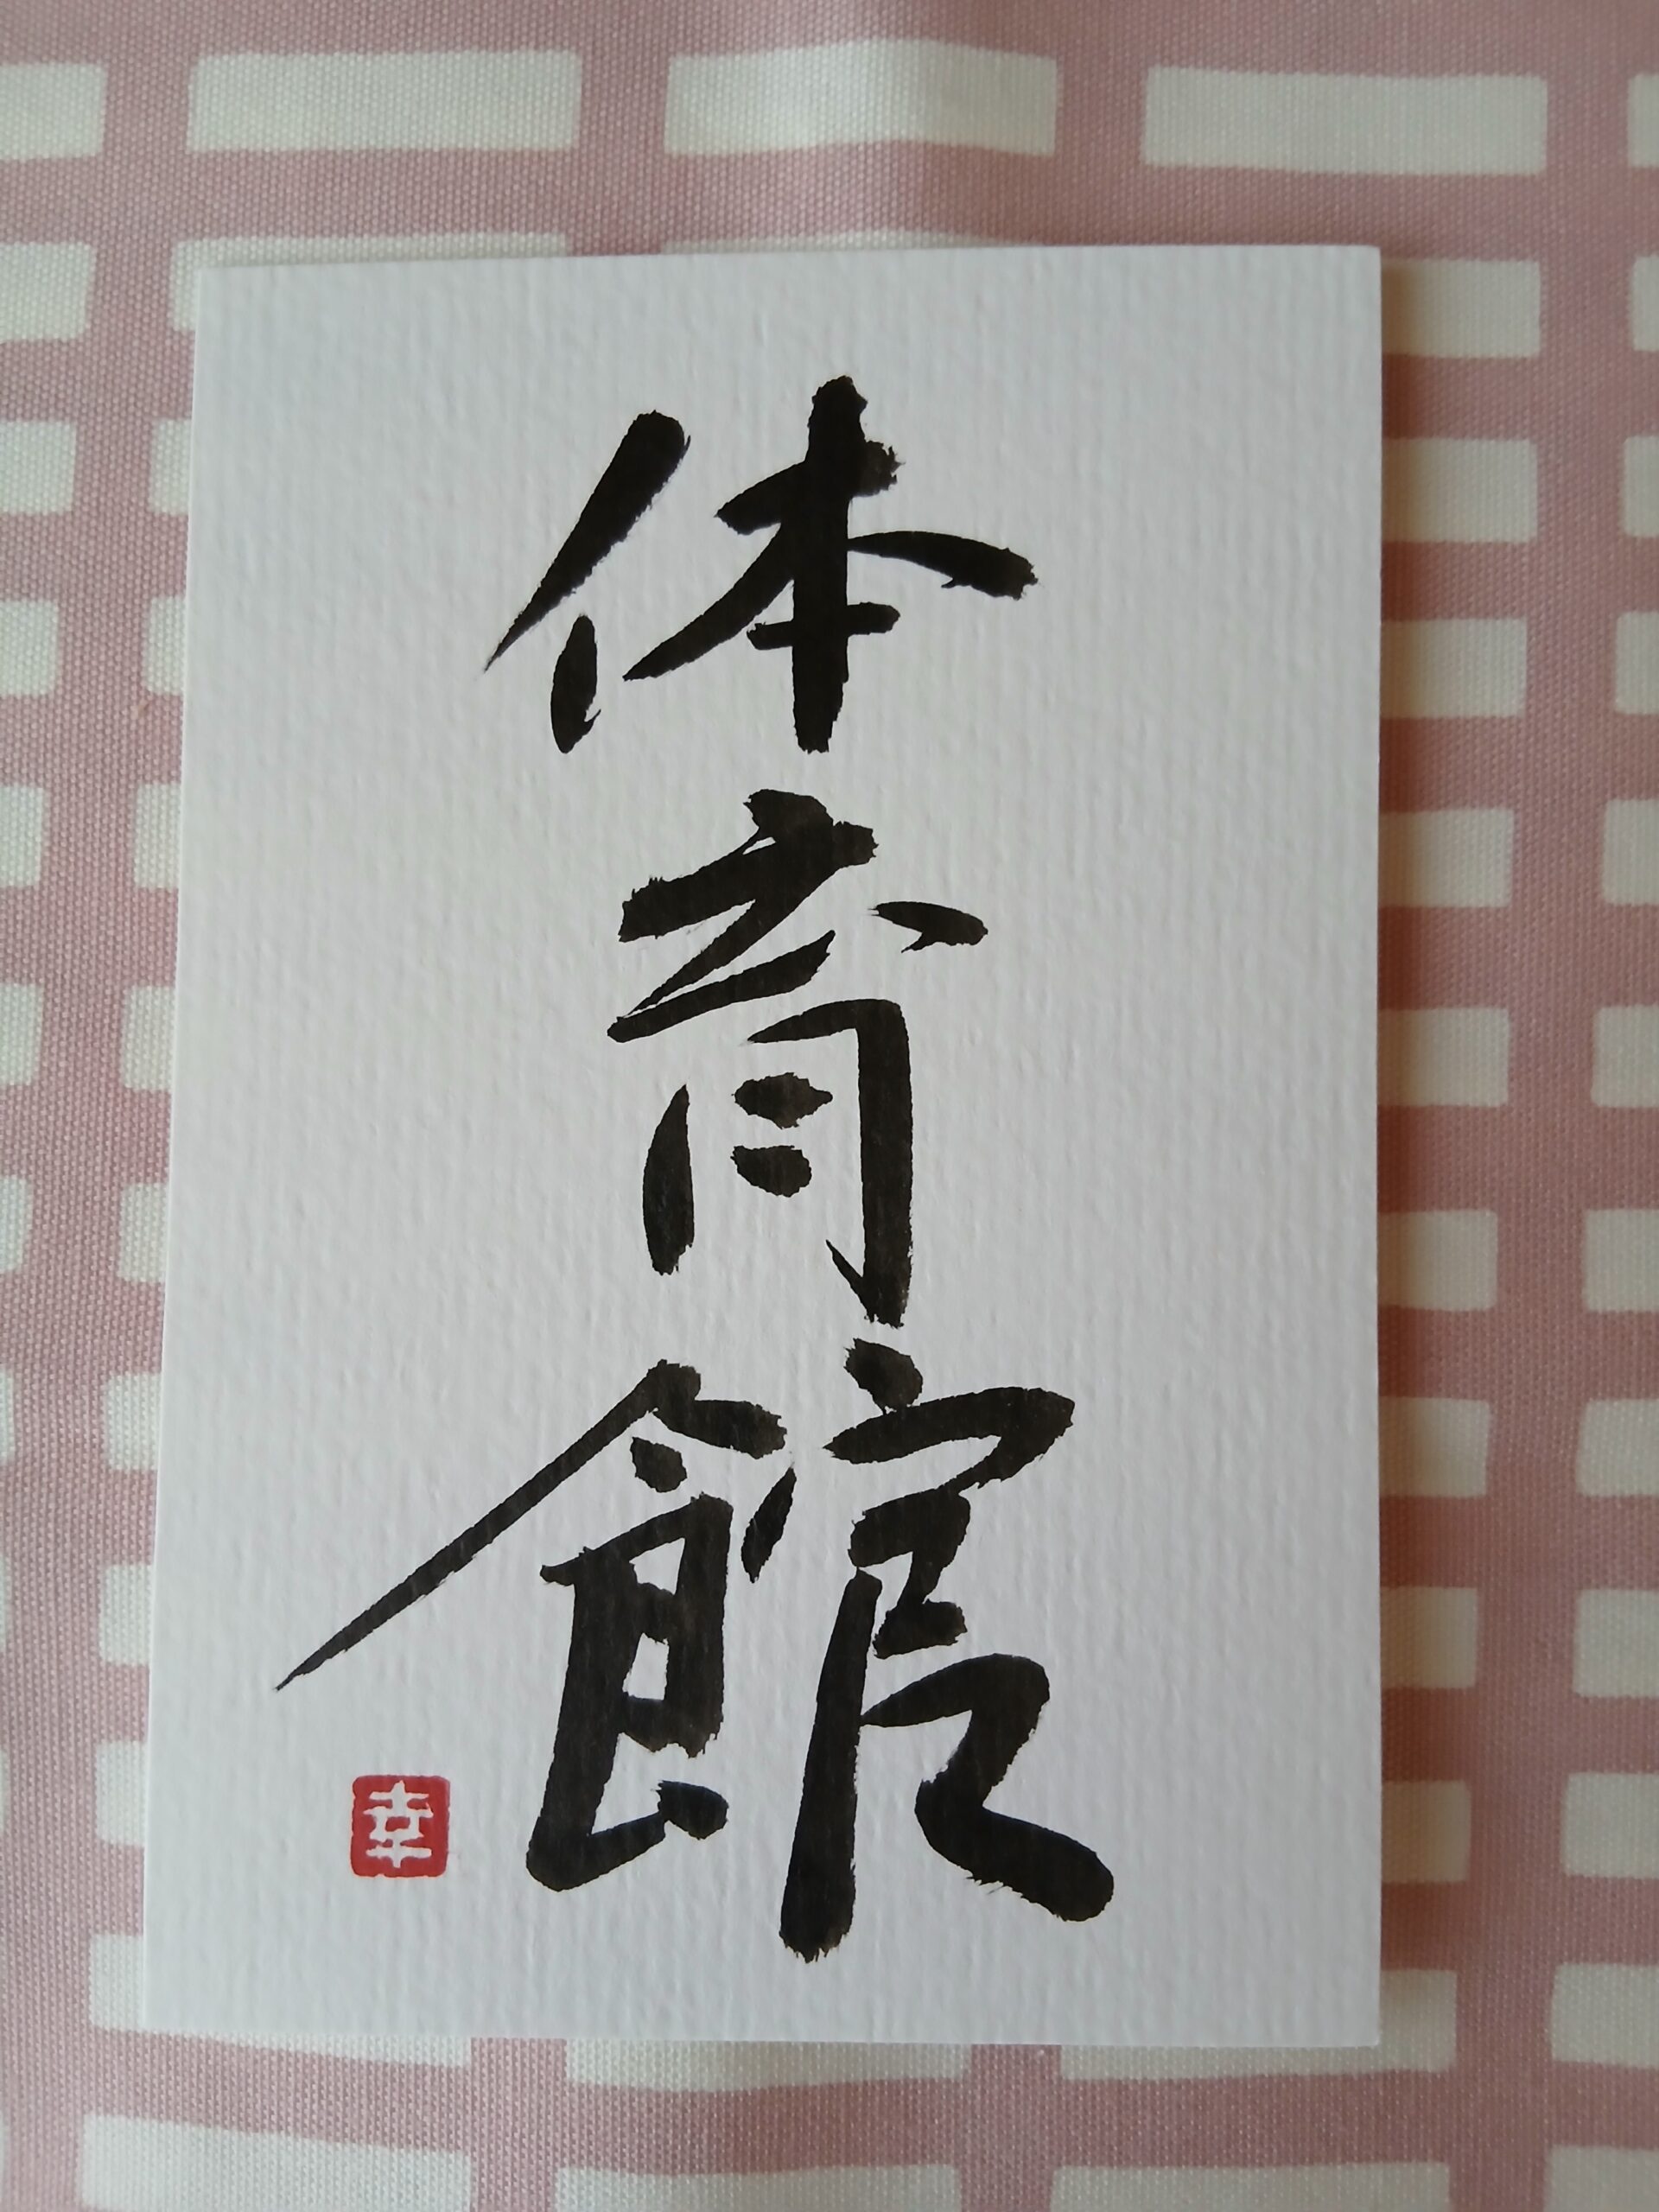 体育館
幸